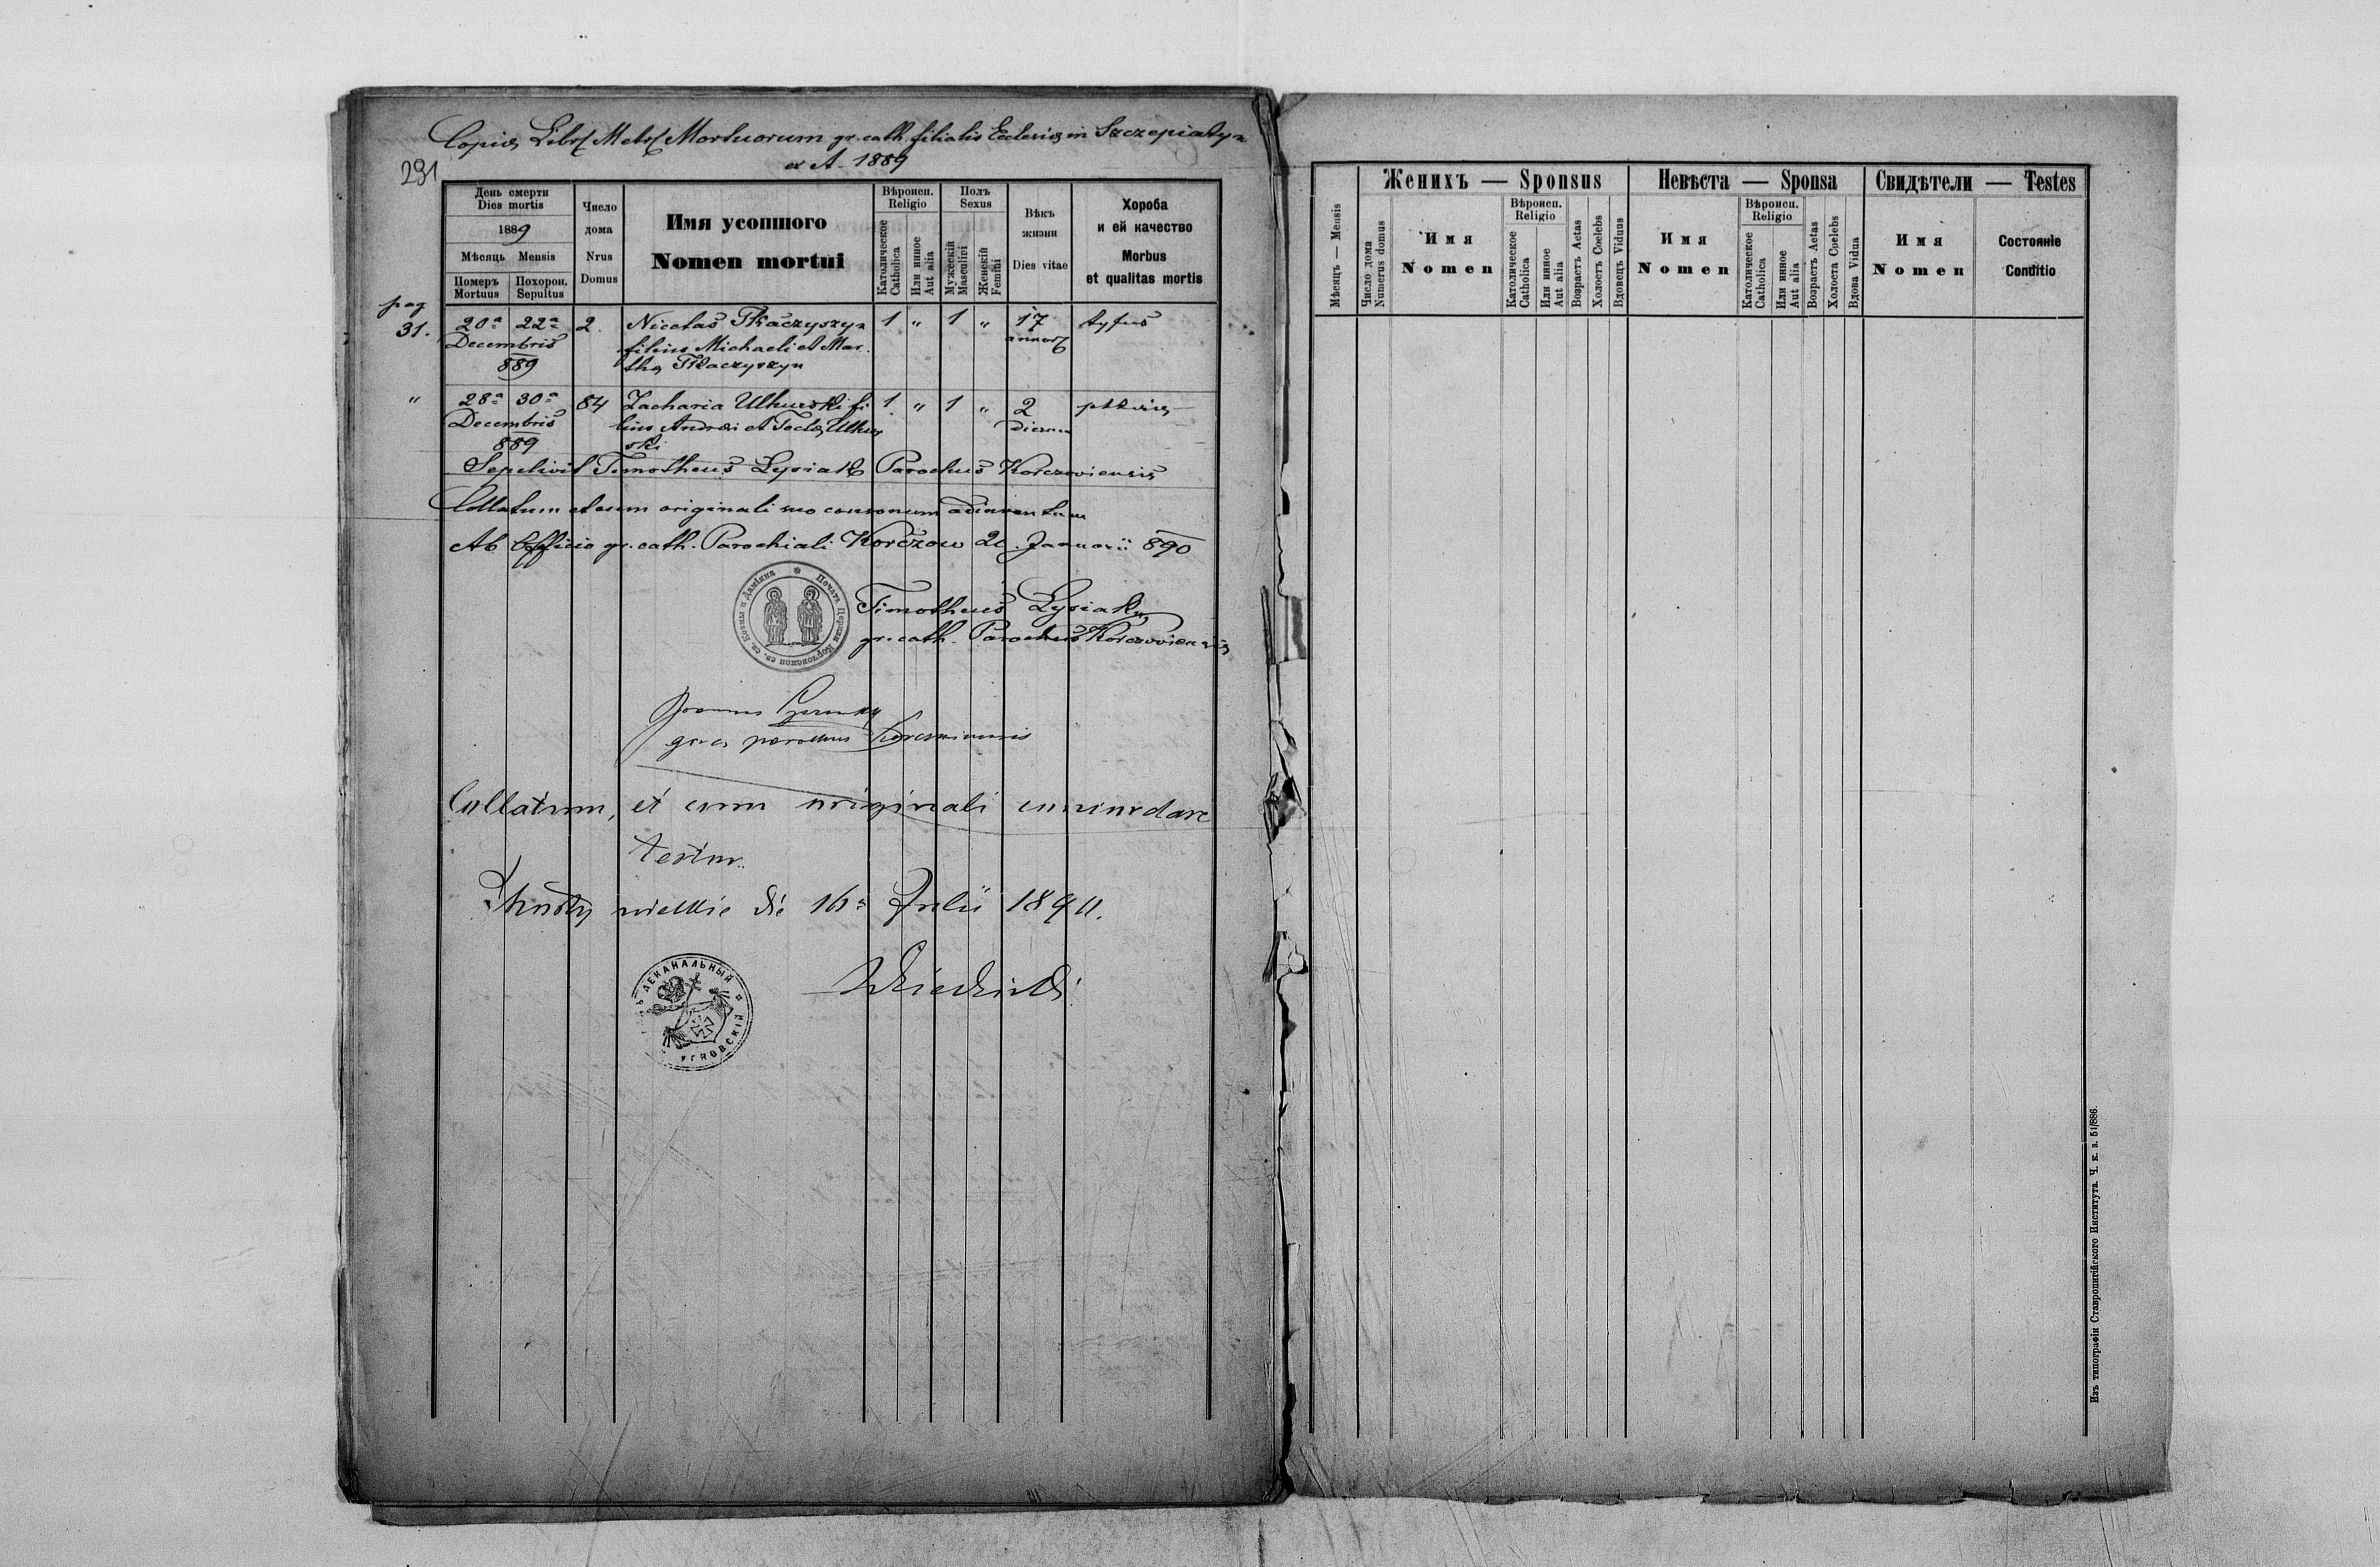 Copia Libr Metr Mortuorum gr. cath. filialis Ecclesiæ in Szczepiatyn
ex A. 1889
291
День смерти
Dies mortis
1889
Мѣсяць Mensis
Померъ
Mortuus
Похорон.
Sepultus
Число
дома
Nrus
Domus
Имя усопшого
Nomen mortui
Вѣроисп.
Religio
Католическое
Catholica
Или инное
Aut alia
Полъ
Sexus
Мужескій
Masculini
Женскій
Femini
Вѣкъ
жизни
Dies vitae
Хороба
и ей качество
Morbus
et qualitas mortis
pag
31. 20a 22a 2. Nicolas Tkaczyszyn 1 " 1 " 17 tyfus
Decembris filius Michaeli et Mar- annor
889 tha Tkaczyszyn
" 28a 30a 84 Zacharia Ulhurski fi 1 " 1 " 2
Decembris lius Andrei et Tecla Ulhur dierum
889 ski
Sepelivit Timotheus Lysiak Parochus Korczoviensis
Collatum et cum originali suo consonum adinventum
Ab Officio gr. cath. Parochiali Korczow Januarii 890
Печать Церкви Корчовской св. св. Козмы и Даміяна
Timotheus Lysiak
gr. cath. Parochus Korczoviensis
parochus
Collatum, et cum originali concordare
testor.
wielkie die 16a Julii
ДЕКАНАЛЬНЫЙ
УГНОВСКІЙ
Женихъ — Sponsus
Невѣста — Sponsa
Свидѣтели — Testes
Мѣсяцъ — Mensis
Число дома
Numerus domus
Имя
Nomen
Вѣроисп.
Religio
Католическое
Catholica
Или инное
Aut alia
Возрастъ Aetas
Холостъ Coelebs
Вдовецъ Viduus
Имя
Nomen
Вѣроисп.
Religio
Католическое
Catholica
Или инное
Aut alia
Возрастъ Aetas
Холоста Coelebs
Вдова Vidua
Имя
Nomen
Состояніе
Conditio
Изъ типографіи Ставропигійского Института. Ч. к. а. 51/886.